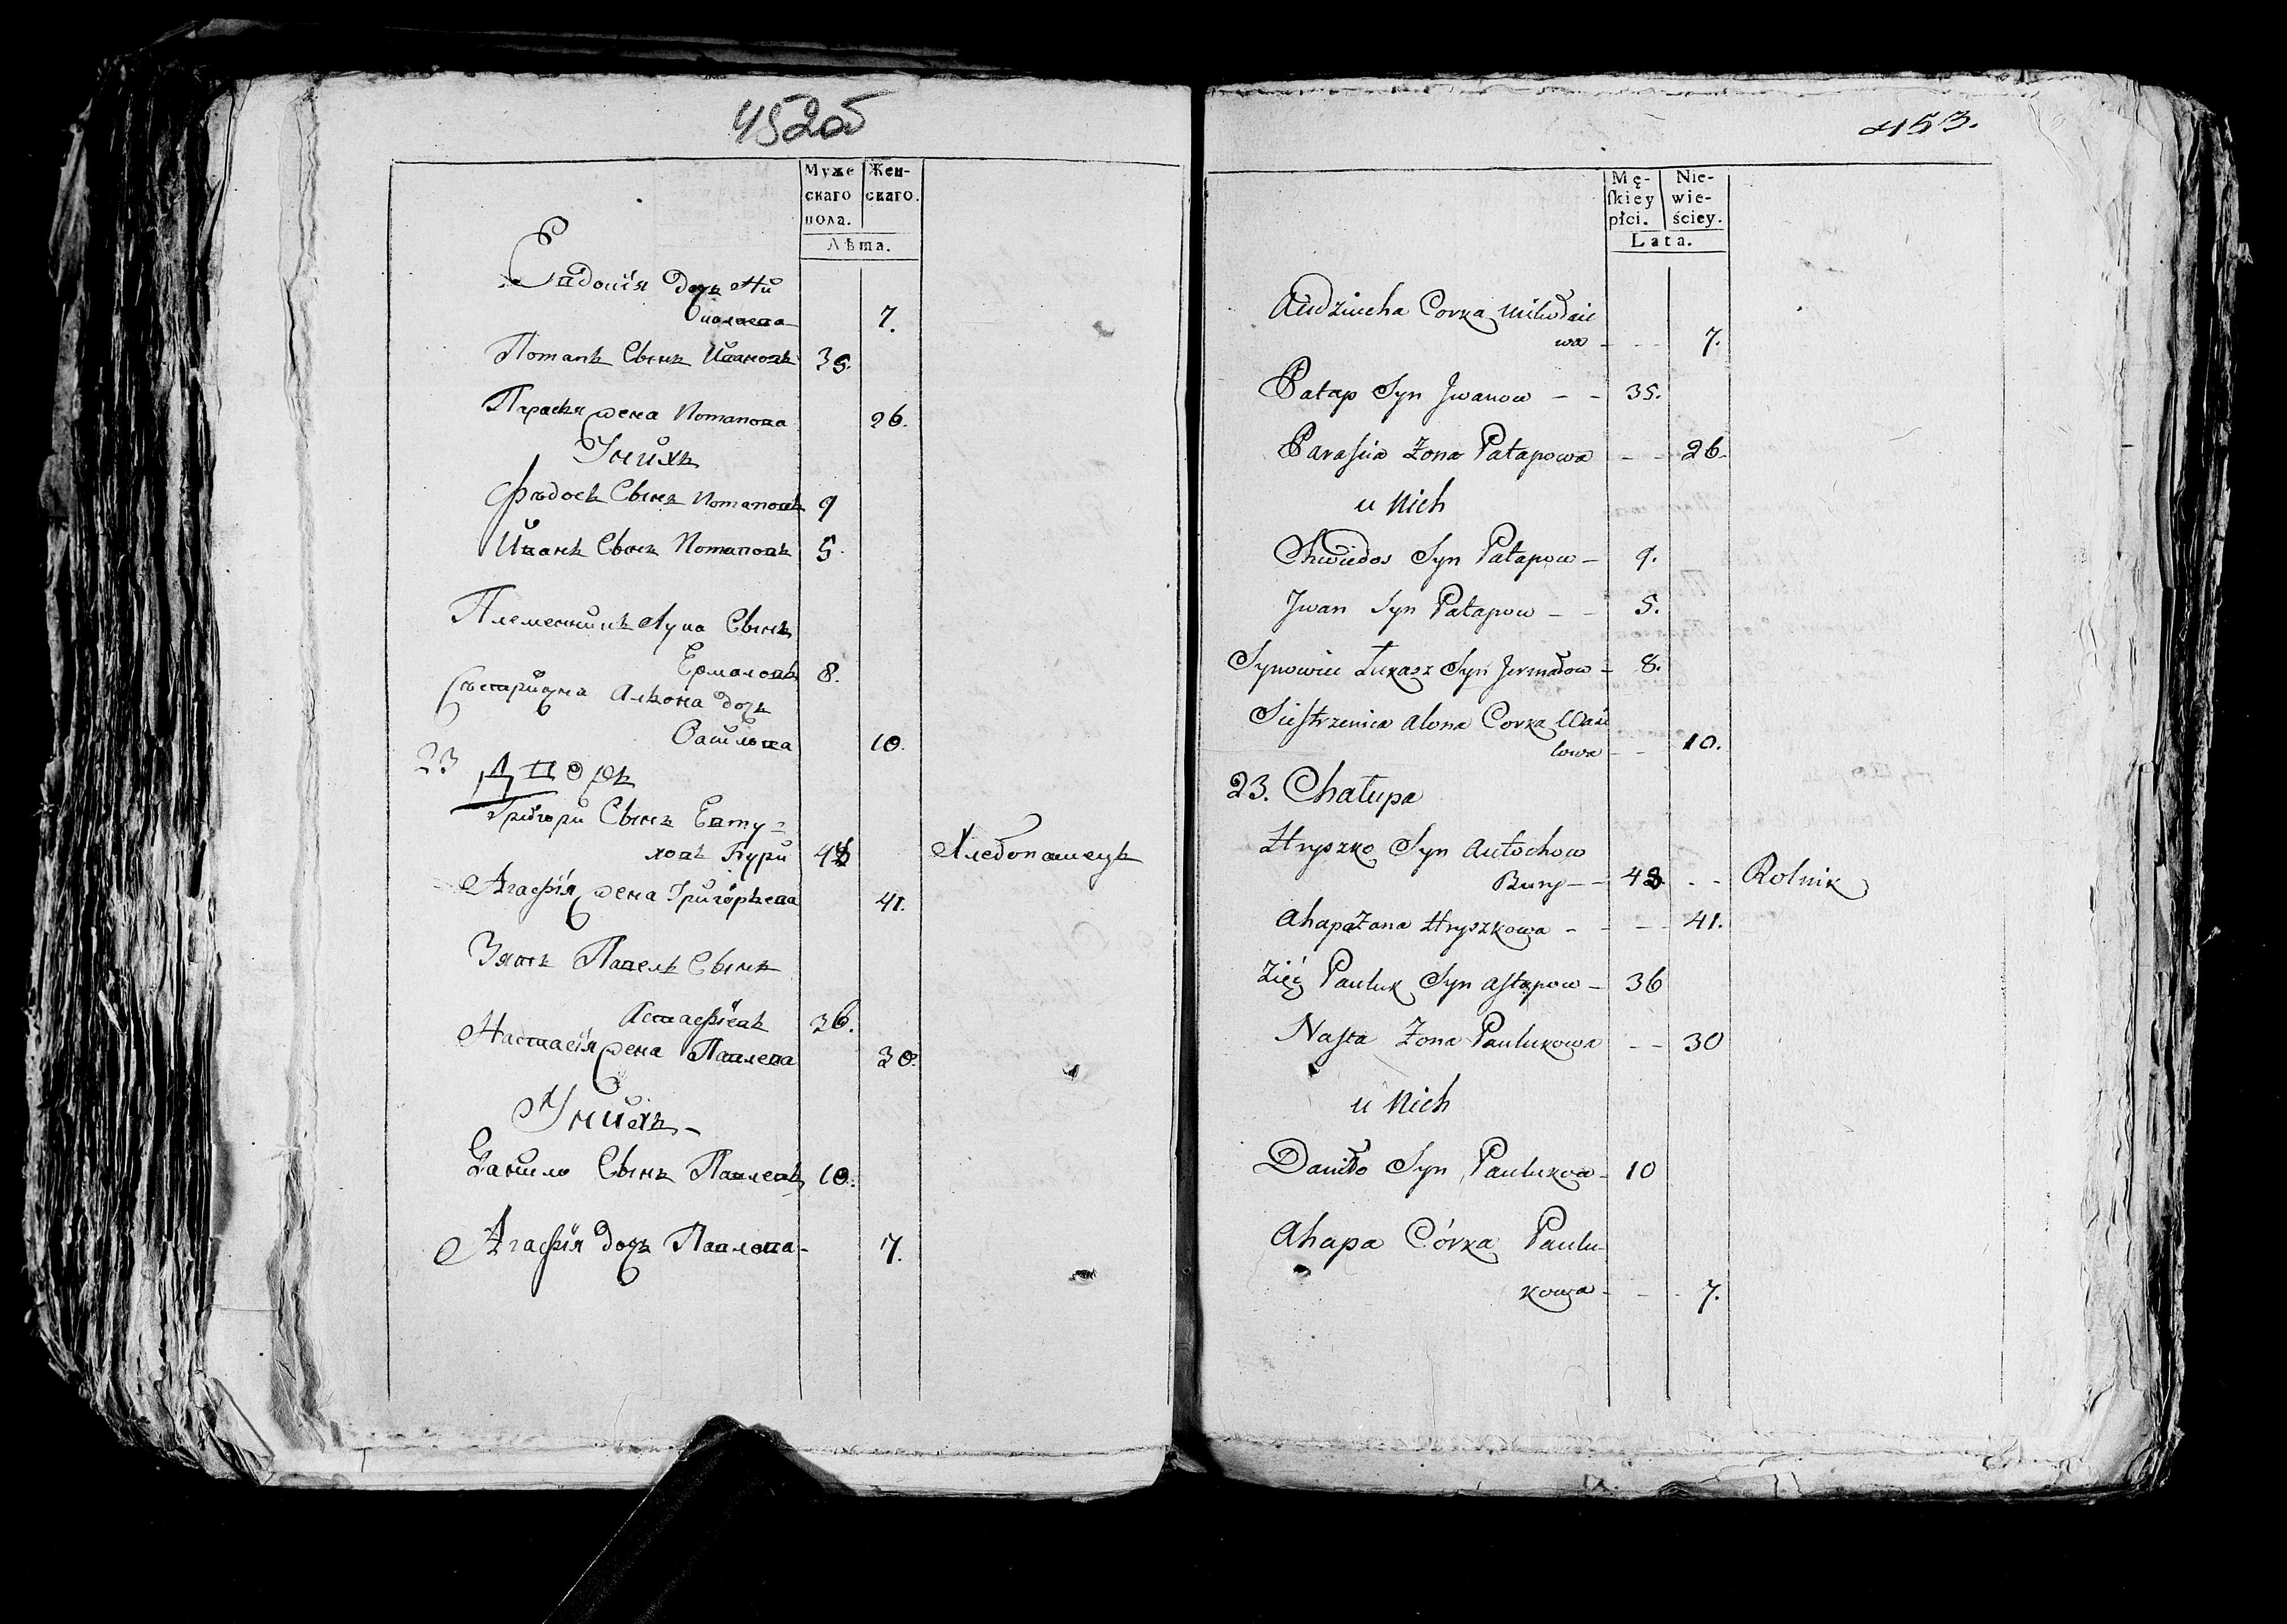 452об
Муже Жен-
скаго скаго.
пола.
Лѣта.
Евдокія дочь Ни
колаева 7.
Потапъ Сынъ Ивановъ 35.
Парасья жена Потапова 26.
У нихъ
Ѳедосъ Сынъ Потаповъ 9
Иванъ Сынъ Потаповъ 5.
Племенникъ Лука Сынъ
Ермаловъ 8.
Сестрична Алѣона дочь
Василева 10.
23 Дворъ
Григори Сынъ Евту=
ховъ Бури 48 Хлебопашецъ
Агафія жена Григорьева 41.
Зять Павелъ Сынъ
Астафіевъ 36.
Настасія жена Павлева 30.
У нихъ-
Данило Сынъ Павлевъ 10.
Агафія дочь Павлова- 7.
453.
Mę- Nie-
ſkiey wie-
płci. ściey.
Lata.
Audziucha Corka Mikołaie
wa - - - 7.
Patap Syn Jwanow - - 35.
Parasia Żona Patapowa - - 26.
u Nich
Chwiedos Syn Patapow - 9.
Jwan Syn Patapow - - 5.
Synowiec Łukasz Syn Jermałow - 8.
Siestrzenica Alona Corka Wasi
lowa - - 10.
23. Chałupa
Hryszko Syn Autochow
Bury - - 48. - - Rolnik
Ahapa Żana Hryszkowa - - - - 41.
Zięć Pauluk Syn Astapow - 36
Nasta Żona Paulukowa - - 30
u Nich
Daniło Syn Paulukow - 10
Ahapa Córka Paulu-
kowa - - - 7.